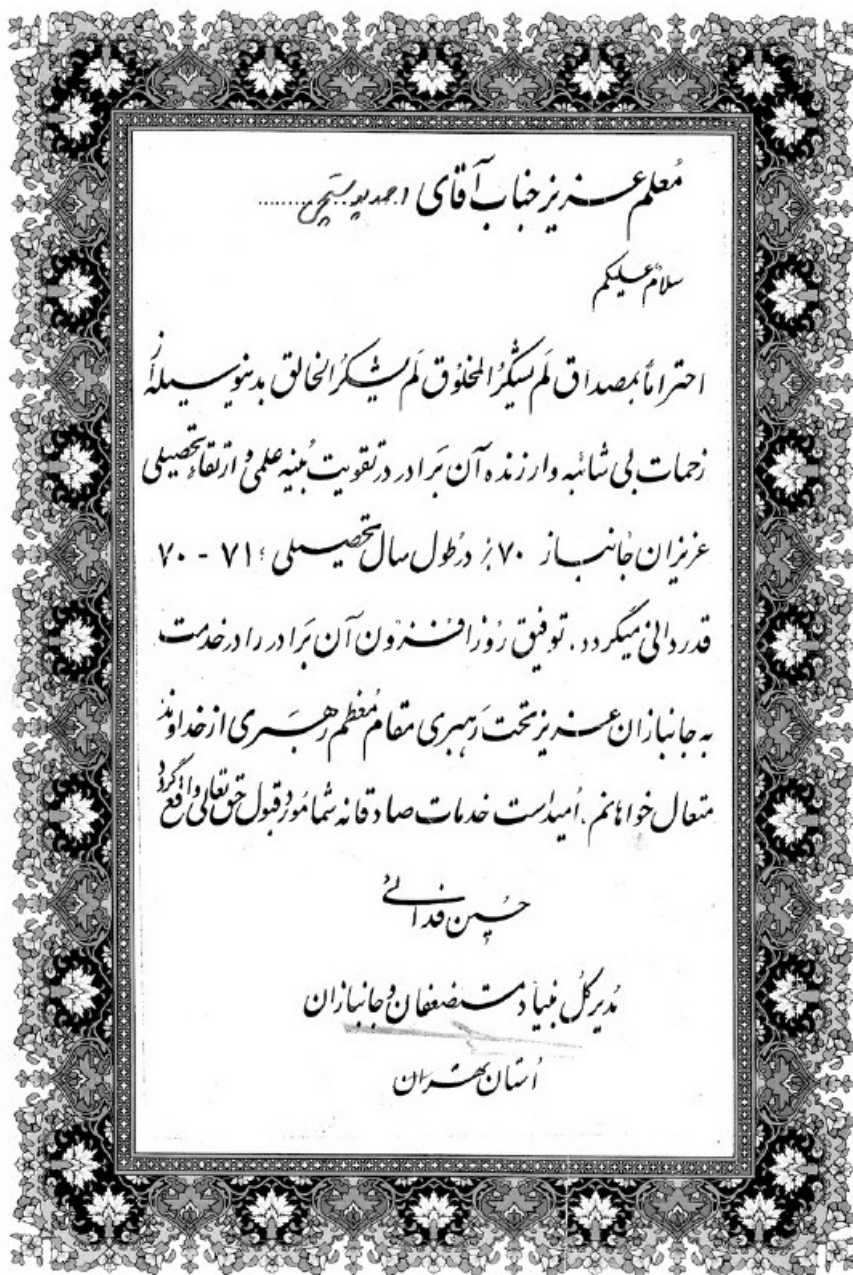 مُعلم عزیز جناب آقای احمد پو.......
سلامٌ علیکم
احتراماً بمصداق لَم یَشکُرُ المخلوق لَم یَشکُرُ الخالق بدینوسیله از
زحمات بی شائبه و ارزنده آن برادر در تقویت بُنیه علمی و ارتقاء تحصیلی
عزیزان جانباز ۷۰٪ در طول سال تحصیلی ؛ ۷۱ - ۷۰
قدردانی میگردد. توفیق روزافزون آن برادر را در خدمت
به جانبازان عزیز تحت رهبری مقام معظم رهبری از خداوند
متعال خواهانم. اُمید است خدمات صادقانه شما مورد قبول حق تعالی واقع گردد
حسین فدائی
مُدیرکل بنیاد مستضعفان و جانبازان
اُستان تهران